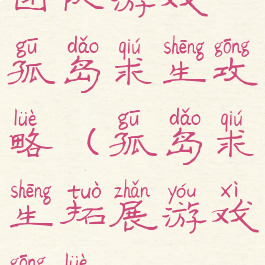 团队游戏
gū dǎo qiú shēng gōng
孤岛求生攻
lüè gū dǎo qiú
略（孤岛求
shēng tuò zhǎn yóu xì
生拓展游戏
gōng lüè